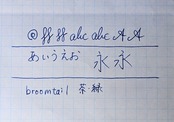 @ ff ff abc abc A A
あいうえお 永 永
broomtail 茶 緑